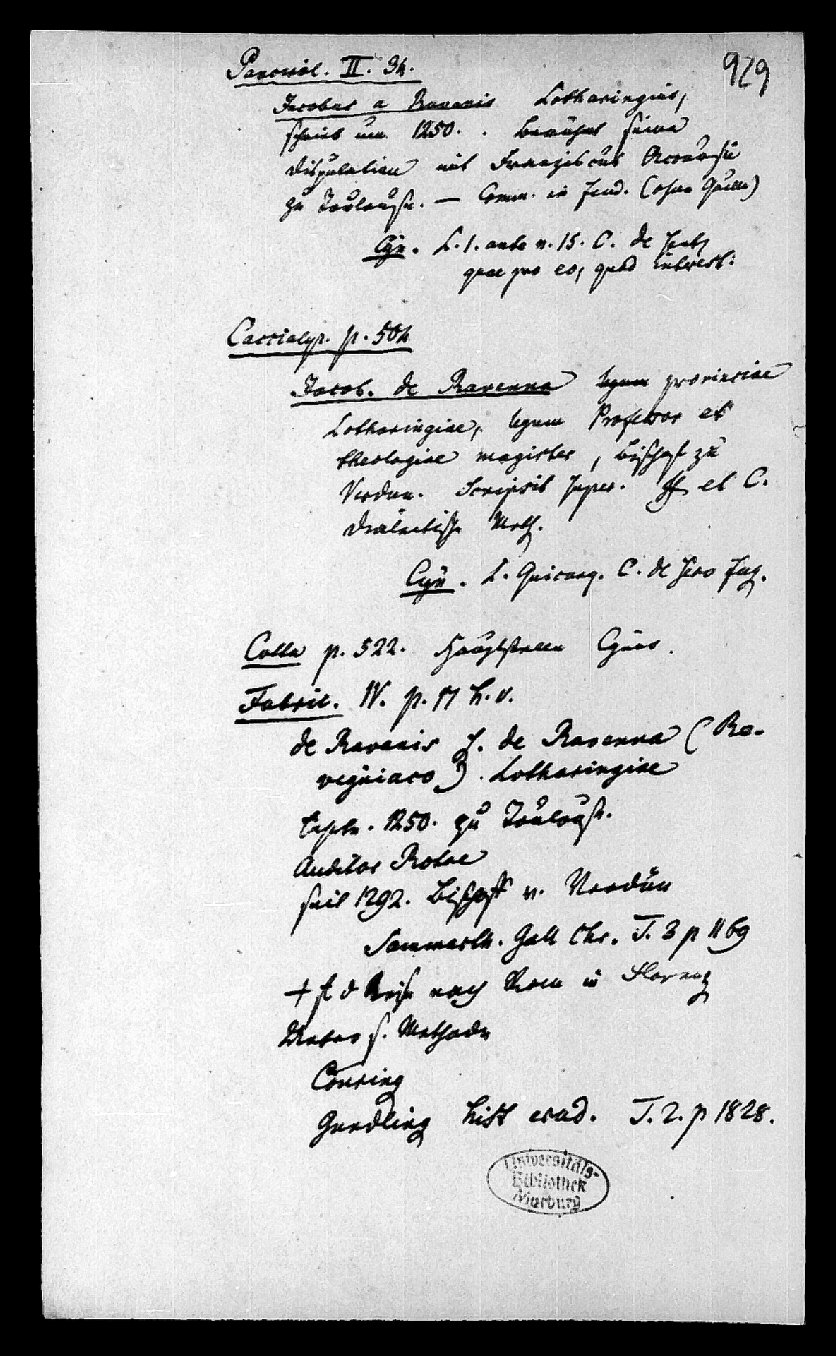 929
Panciral. II. 34.
Jacobus a Ravanis Lotharingus,
schrieb um 1250. . Berühmt seine
disputation mit Franziscus Accursii
zu Toulouse. — Comm. in feud. (ohne Quelle)
Cyn. L. 1. ante n. 15. C. de sent.
quae pro eo, quod interest:
Caccialup. p. 504
Jacob. de Ravenna provinciae
Lotharingiae, legum Professor et
theologiae magister, Bischof zu
Verdun. Scripsit super. ff et C.
dialectische Meth.
Cyn. L. Quicunq. C. de servo fug.
Cotta p. 522. Hauptstellen Cyns.
Fabric. IV. p. 17 h. v.
de Ravanis s. de Ravenna (Ra-
vegniaco). Lotharingiae
1250. zu Toulouse.
Auditor Rotae
seit 1292. Bischoff v. Verdün
Sammarth. Gall Chr. T. 3 p 1169
+ a d Reise nach Rom in Florenz
s. Methode
Conring
Gundling hist erud. T. 2. p 1828.
Universitäts-
Bibliothek
Marburg